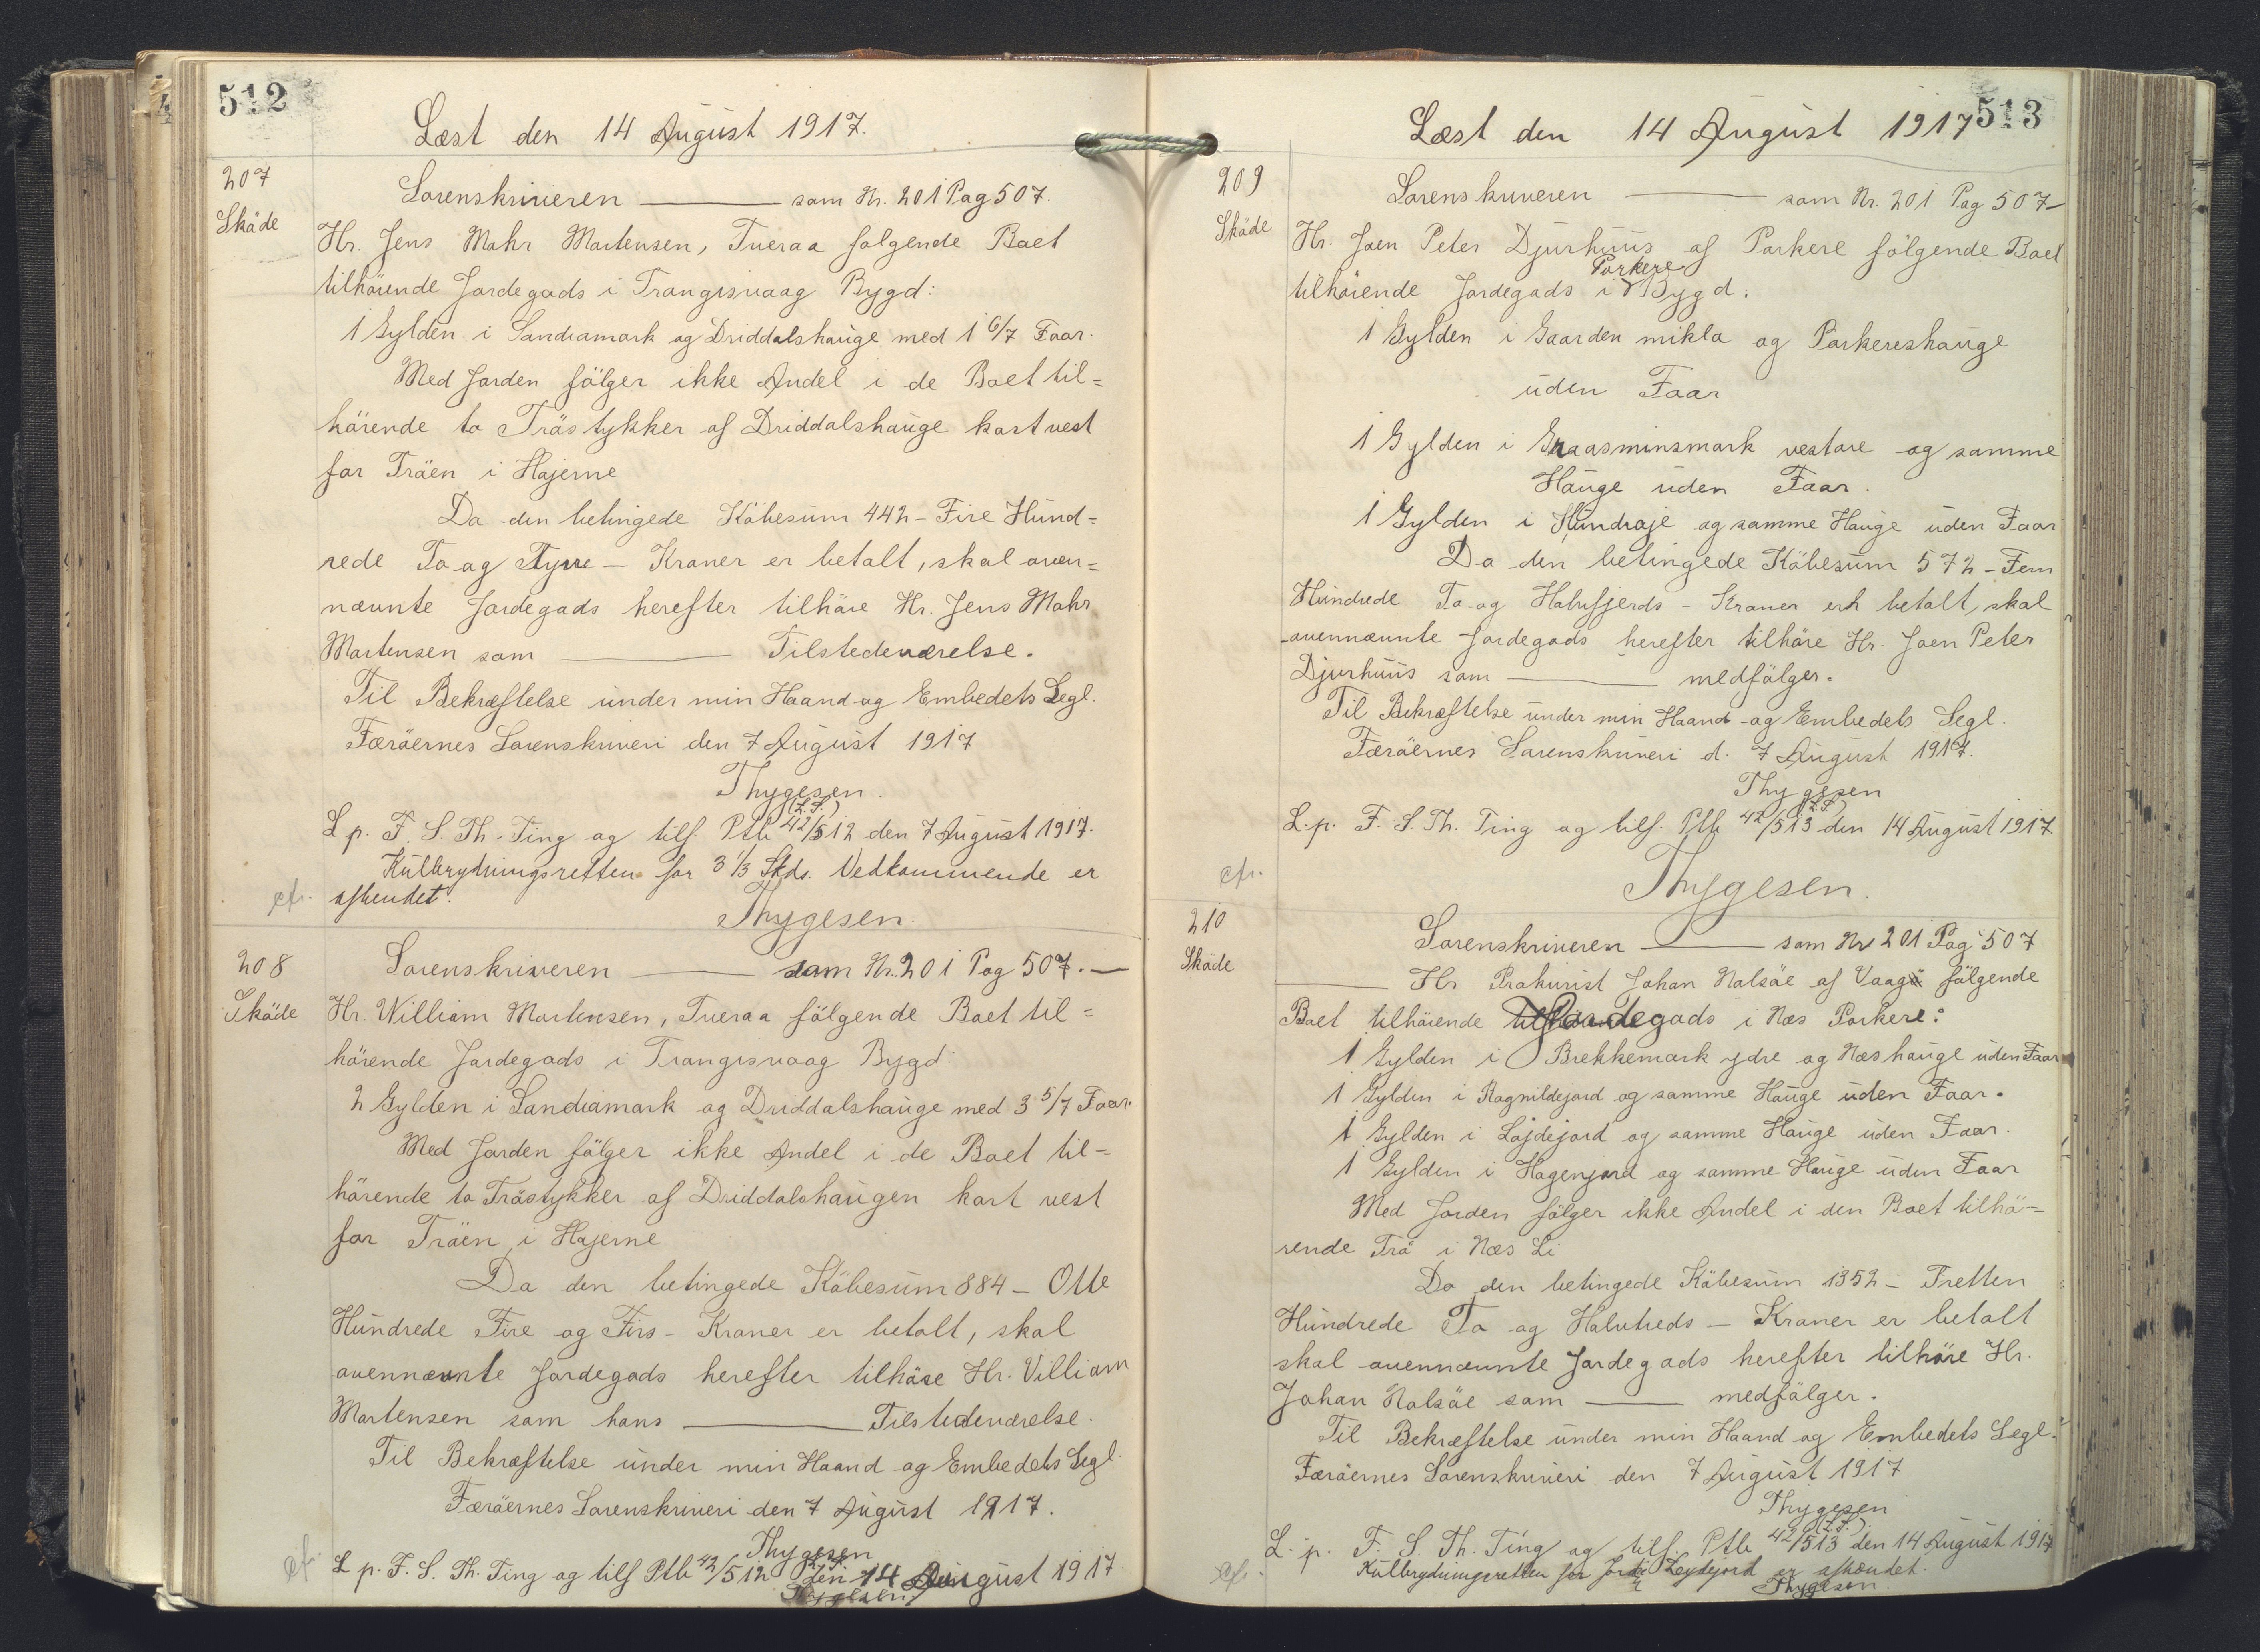 512
Læst den 14 August 1917.
207
Sköde
Sorenskriveren — som Nr. 201 Pag 507.
Hr. Jens Mohr Mortensen, Tveraa følgende Boet
tilhörende Jordegods i Trangisvaag Bygd:
1 Gylden i Sandiamark og Driddalshauge med 1 6/7 Faar.
Med Jorden fölger ikke Andel i de Boet til=
hörende to Trästykker af Driddalshauge kort vest
for Träen i Hajerne
Da den betingede Köbesum 442 - Fire Hund=
rede To og Fyrre - Kroner er betalt, skal oven=
nævnte Jordegods herefter tilhöre Hr. Jens Mohr
Mortensen som — Tilstedeværelse.
Til Bekræftelse under min Haand og Embedets Segl.
Færöernes Sorenskriveri den 7 August 1917
Thygesen.
(L.S.)
L. p. F. S. Th. Ting og tilf. Ptb 42/512 den 7 August 1917.
Kulbrydningsretten for 3 1/3 Skds. Vedkommende er
cfr. afhendet.
Thygesen.
208
Sköde
Sorenskriveren — som Nr. 201 Pag 507. —
Hr. William Mortensen, Tveraa fölgende Boet til=
hörende Jordegods i Trangisvaag Bygd:
2 Gylden i Sandiamark og Driddalshauge med 3 5/7 Faar.
Med Jorden fölger ikke Andel i de Boet til=
hörende to Trästykker af Driddalshaugen kort vest
for Träen i Hajerne
Da den betingede Köbesum 884 - Otte
Hundrede Fire og Firs - Kroner er betalt, skal
ovennævnte Jordegods herefter tilhöre Hr. Villiam
Mortensen som hans — Tilstedeværelse.
Til Bekræftelse under min Haand og Embedets Segl.
Færöernes Sorenskriveri den 7 August 1917.
Thygesen
L.S.
cfr. L p. F. S. Th. Ting og tilf Ptb 42/512 den 14 August 1917.
Thygesen
513
Læst den 14 August 1917
209
Sköde
Sorenskriveren — som Nr. 201 Pag 507 -
Hr. Joen Peter Djurhuus af Porkere fölgende Boet
Porkere
tilhörende Jordegods i Bygd:
1 Gylden i Gaarden mikla og Porkereshauge
uden Faar
1 Gylden i Graasminsmark vestare og samme
Hauge uden Faar.
1 Gylden i Hundraje og samme Hauge uden Faar
Da den betingede Köbesum 572 - Fem
Hundrede To og Halvfjerds - Kroner er betalt, skal
ovennævnte Jordegods herefter tilhöre Hr. Joen Peter
Djurhuus som — medfölger.
Til Bekræftelse under min Haand og Embedets Segl.
Færöernes Sorenskriveri d. 7 August 1917.
Thygesen
(L.S.)
L. p. F. S. Th. Ting og tilf. Ptb 42/513 den 14 August 1917
cfr.
Thygesen.
210
Sköde
Sorenskriveren — som Nr 201 Pag 507
— Hr Prokurist Johan Nolsöe af Vaag fölgende
Boet tilhörende Jordegods i Næs Porkere:
1 Gylden i Brekkemark ydre og Næshauge uden Faar
1 Gylden i Ragnildejord og samme Hauge uden Faar.
1 Gylden i Lojdejord og samme Hauge uden Faar.
1 Gylden i Hagenjord og samme Hauge uden Faar
Med Jorden fölger ikke Andel i den Boet tilhö=
rende Trö i Næs Li
Da den betingede Köbesum 1352 - Tretten
Hundrede To og Halvtreds - Kroner er betalt
skal ovennævnte Jordegods herefter tilhöre Hr.
Johan Nolsöe som — medfölger.
Til Bekræftelse under min Haand og Embedets Segl.
Færöernes Sorenskriveri den 7 August 1917
Thygesen
(L.S.)
L. p. F. S. Th. Ting og tilf. Ptb 42/513 den 14 August 1917
cfr. Kulbrydningsretten for Jord i Lejdejord er afhændet.
Thygesen.